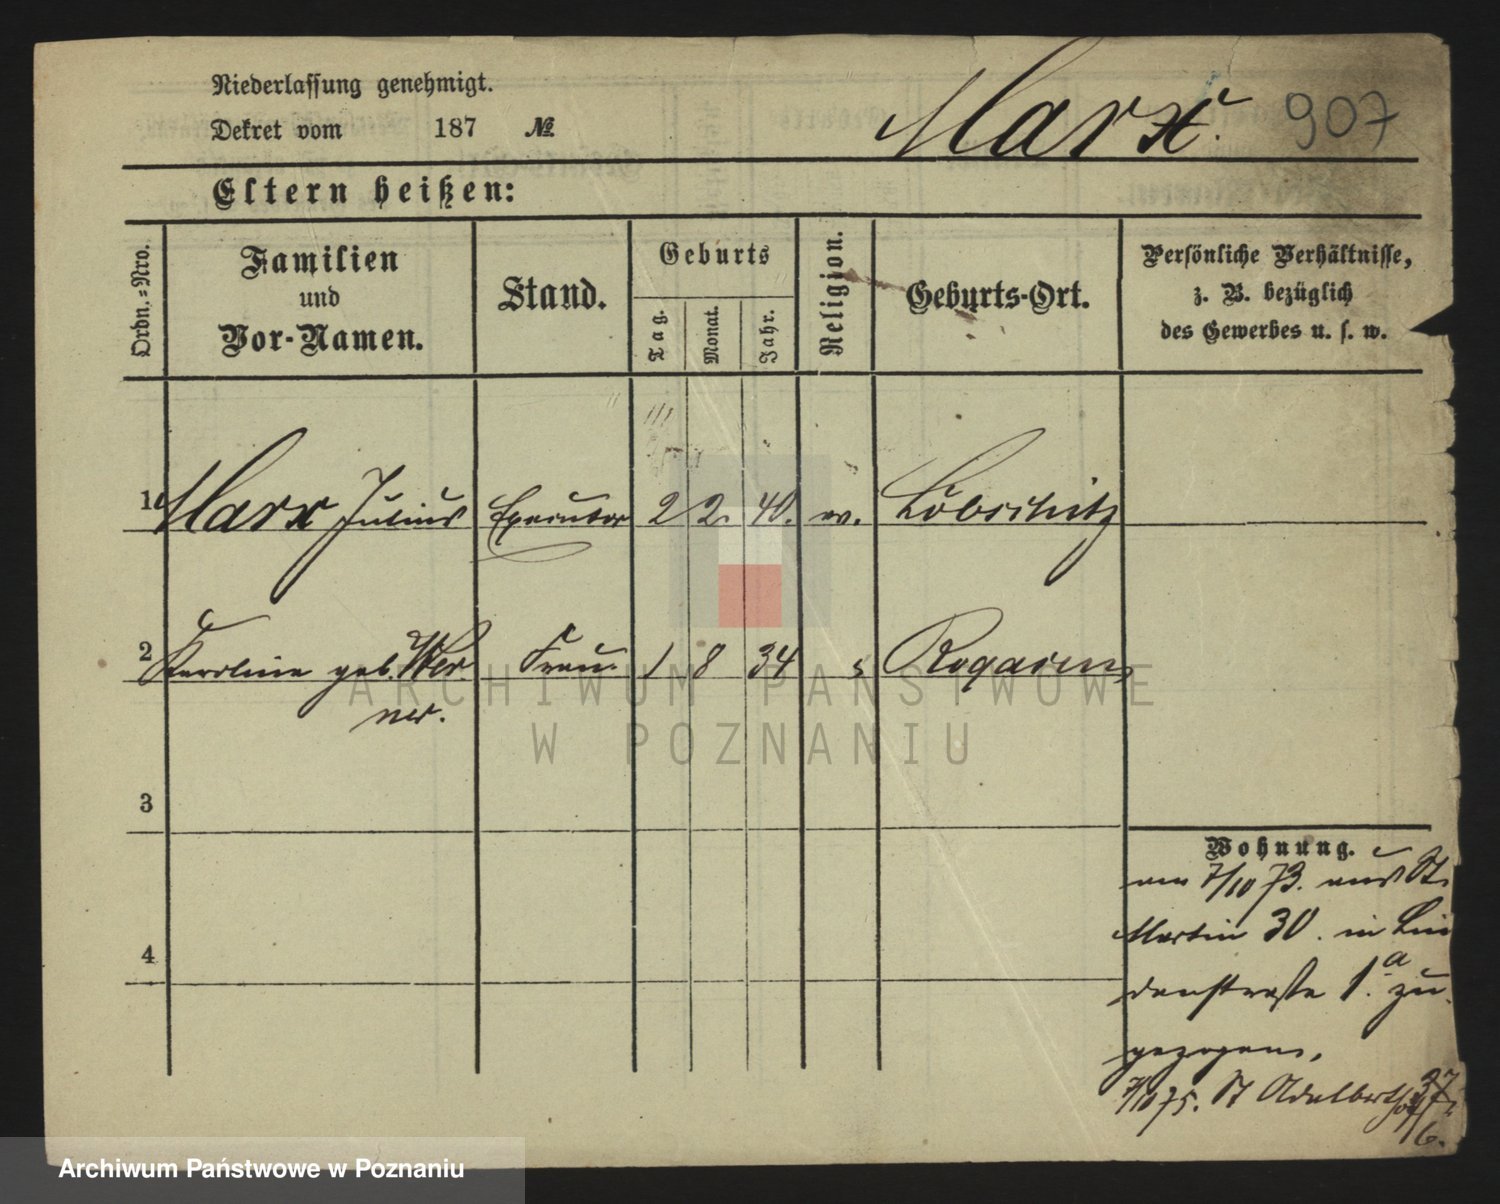 Niederlassung genehmigt.
Dekret vom 187 №
Marx. 907
Eltern heißen:
Ordn.=Nro.
Familien
und
Vor-Namen.
Stand.
Geburts
Tag.
Monat.
Jahr.
Religion.
Geburts-Ort.
Persönliche Verhältnisse,
z. B. bezüglich
des Gewerbes u. s. w.
1 Marx Julius Executor 2 2. 40. ev. Löbschitz
2 Karoline geb. Wer
ner. Frau. 1 8 34 Rogasen
3
4
Wohnung.
am 7/10 73. aus St.
Martin 30. in Lin
denstraße 1.a zu
gezogen.
7/10 75. St Adalbert
ARCHIWUM PAŃSTWOWE
W POZNANIU
Archiwum Państwowe w Poznaniu